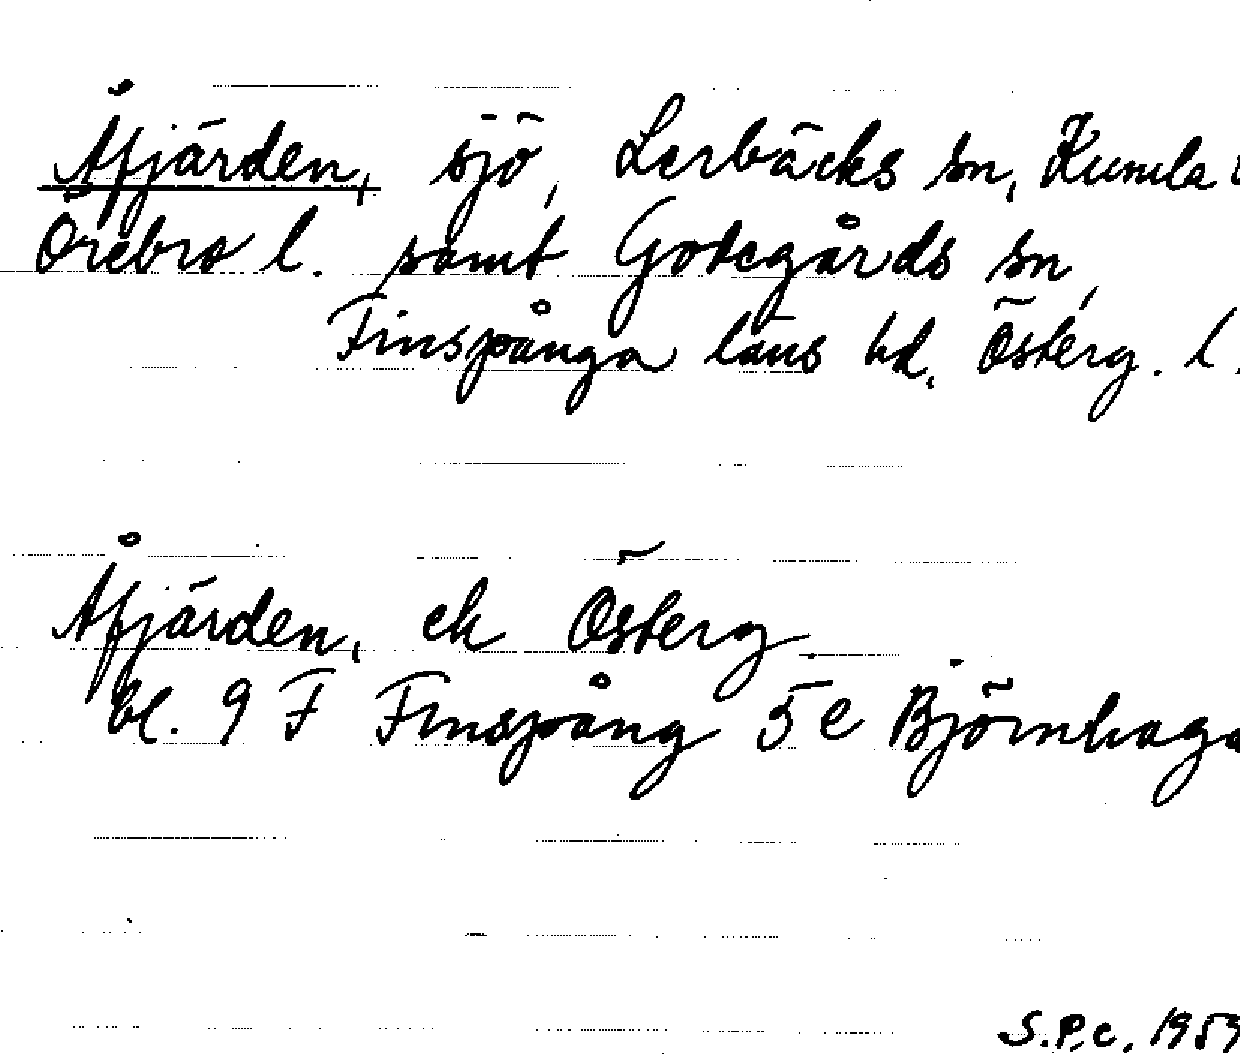 Åfjärden, sjö, Lerbäcks sn, Kumla
Örebro l. samt Godegårds sn,
Finspånga läns hd, Österg. l.
Åfjärden, ek Österg.
bl. 9 F Finspång 5 e Björnhaga
S.P.c. 1959